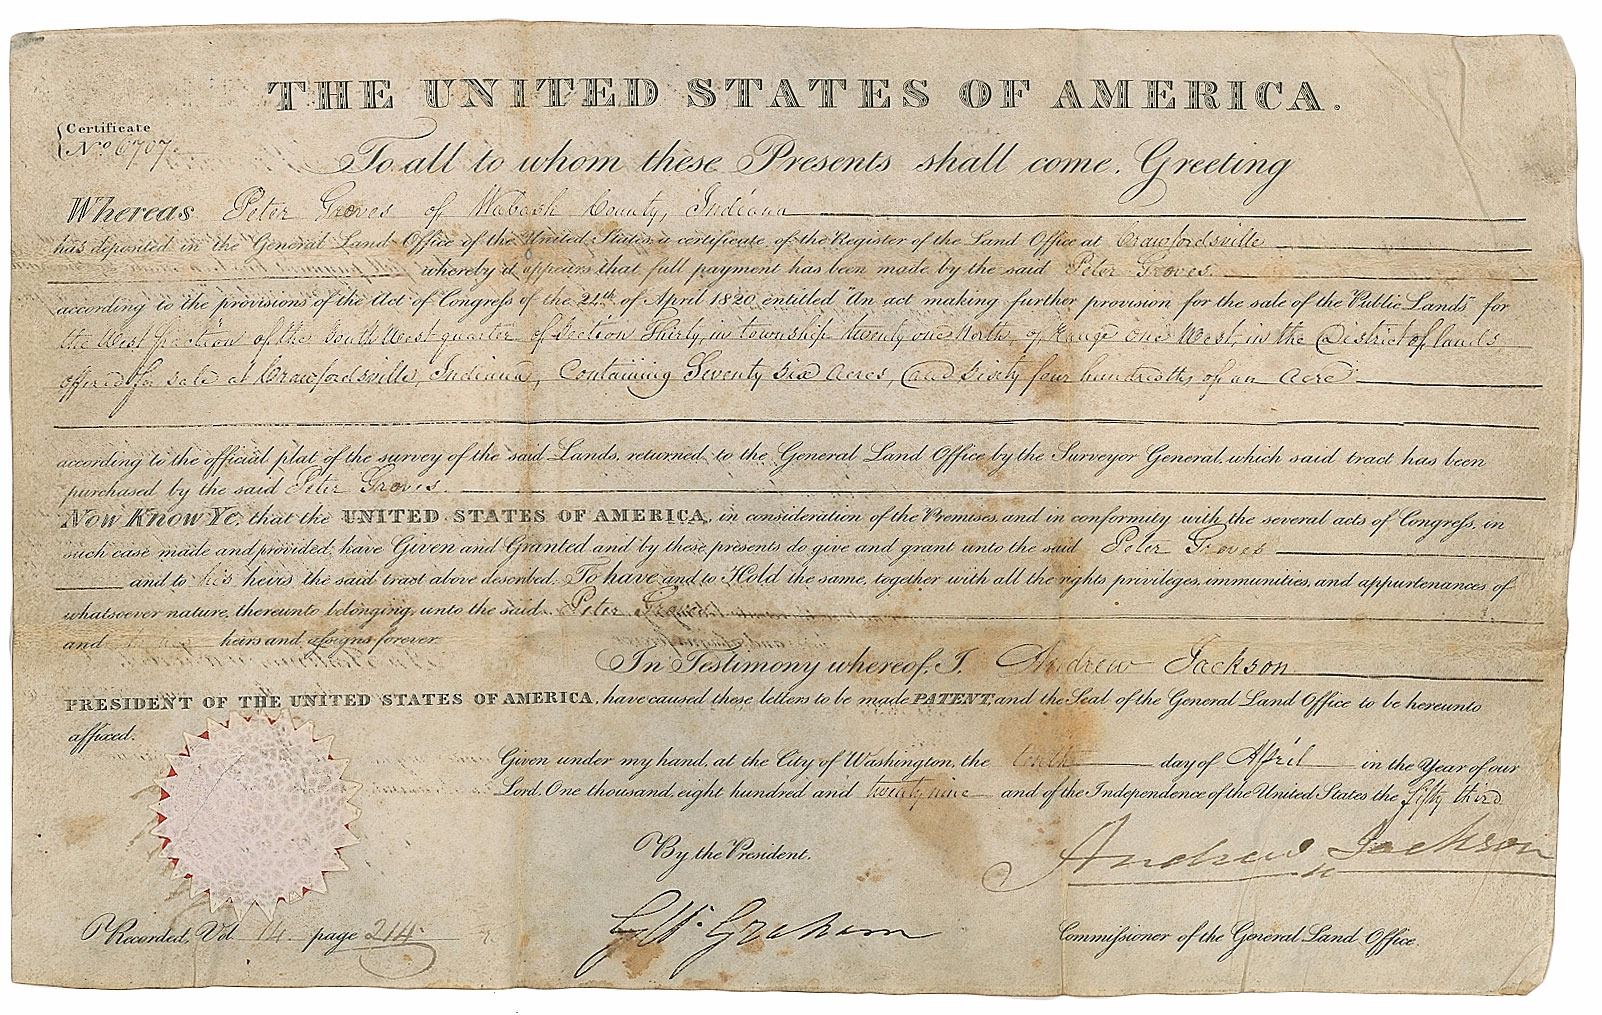 THE UNITED STATES OF AMERICA.
Certificate
No 6707
To all to whom these Presents shall come, Greeting
Whereas Peter Groves of Wabash County, Indiana
has deposited in the General Land Office of the United States, a certificate of the Register of the Land Office at Crawfordsville
whereby it appears that full payment has been made by the said Peter Groves
according to the provisions of the Act of Congress of the 24th of April 1820 entitled "An act making further provision for the sale of the Public Lands" for
the West fraction of the South West quarter of Section Thirty, in township twenty one North, of Range One West, in the District of lands
offered for sale at Crawfordsville, Indiana, Containing Seventy Six Acres, and Sixty four hundredths of an Acre
according to the official plat of the survey of the said Lands, returned to the General Land Office by the Surveyor General, which said tract has been
purchased by the said Peter Groves.
Now Know Ye, that the UNITED STATES OF AMERICA, in consideration of the Premises, and in conformity with the several acts of Congress, in
such case made and provided, have Given and Granted and by these presents do give and grant unto the said Peter Groves
and to his heirs the said tract above described. To have and to Hold the same, together with all the rights privileges, immunities, and appurtenances of
whatsoever nature, thereunto belonging, unto the said Peter Groves
and heirs and assigns forever.
In Testimony whereof, I, Andrew Jackson
PRESIDENT OF THE UNITED STATES OF AMERICA, have caused these letters to be made PATENT, and the Seal of the General Land Office to be hereunto
affixed.
Given under my hand, at the City of Washington, the tenth day of April in the Year of our
Lord, One thousand, eight hundred and twenty nine and of the Independence of the United States the fifty third
Andrew Jackson
By the President.
G W Graham
Commissioner of the General Land Office.
Recorded, Vol. 14 page 214